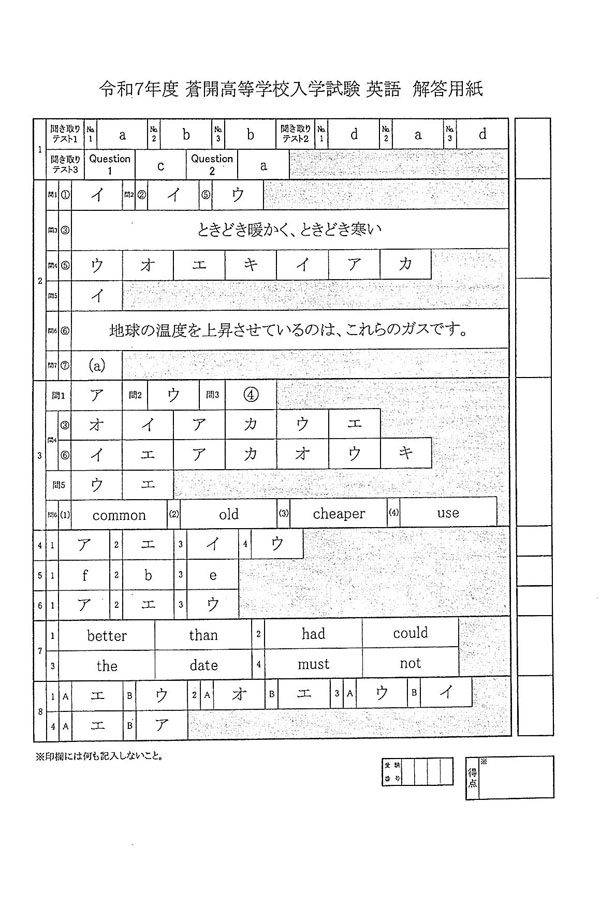 令和7年度 蒼開高等学校入学試験 英語 解答用紙
1 聞き取りテスト1 No.1 a No.2 b No.3 b 聞き取りテスト2 No.1 d No.2 a No.3 d
聞き取りテスト3 Question 1 c Question 2 a
2 問1 ① イ 問2 ② イ ⑤ ウ
問3 ③ ときどき暖かく、ときどき寒い
問4 ⑤ ウ オ エ キ イ ア カ
問5 イ
問6 ⑥ 地球の温度を上昇させているのは、これらのガスです。
問7 ⑦ (a)
3 問1 ア 問2 ウ 問3 ④
問4 ③ オ イ ア カ ウ エ
⑥ イ エ ア カ オ ウ キ
問5 ウ エ
問6 (1) common (2) old (3) cheaper (4) use
4 1 ア 2 エ 3 イ 4 ウ
5 1 f 2 b 3 e
6 1 ア 2 エ 3 ウ
7 1 better than 2 had could
3 the date 4 must not
8 1 A エ B ウ 2 A オ B エ 3 A ウ B イ
4 A エ B ア
※印欄には何も記入しないこと。
受験番号
得点 ※